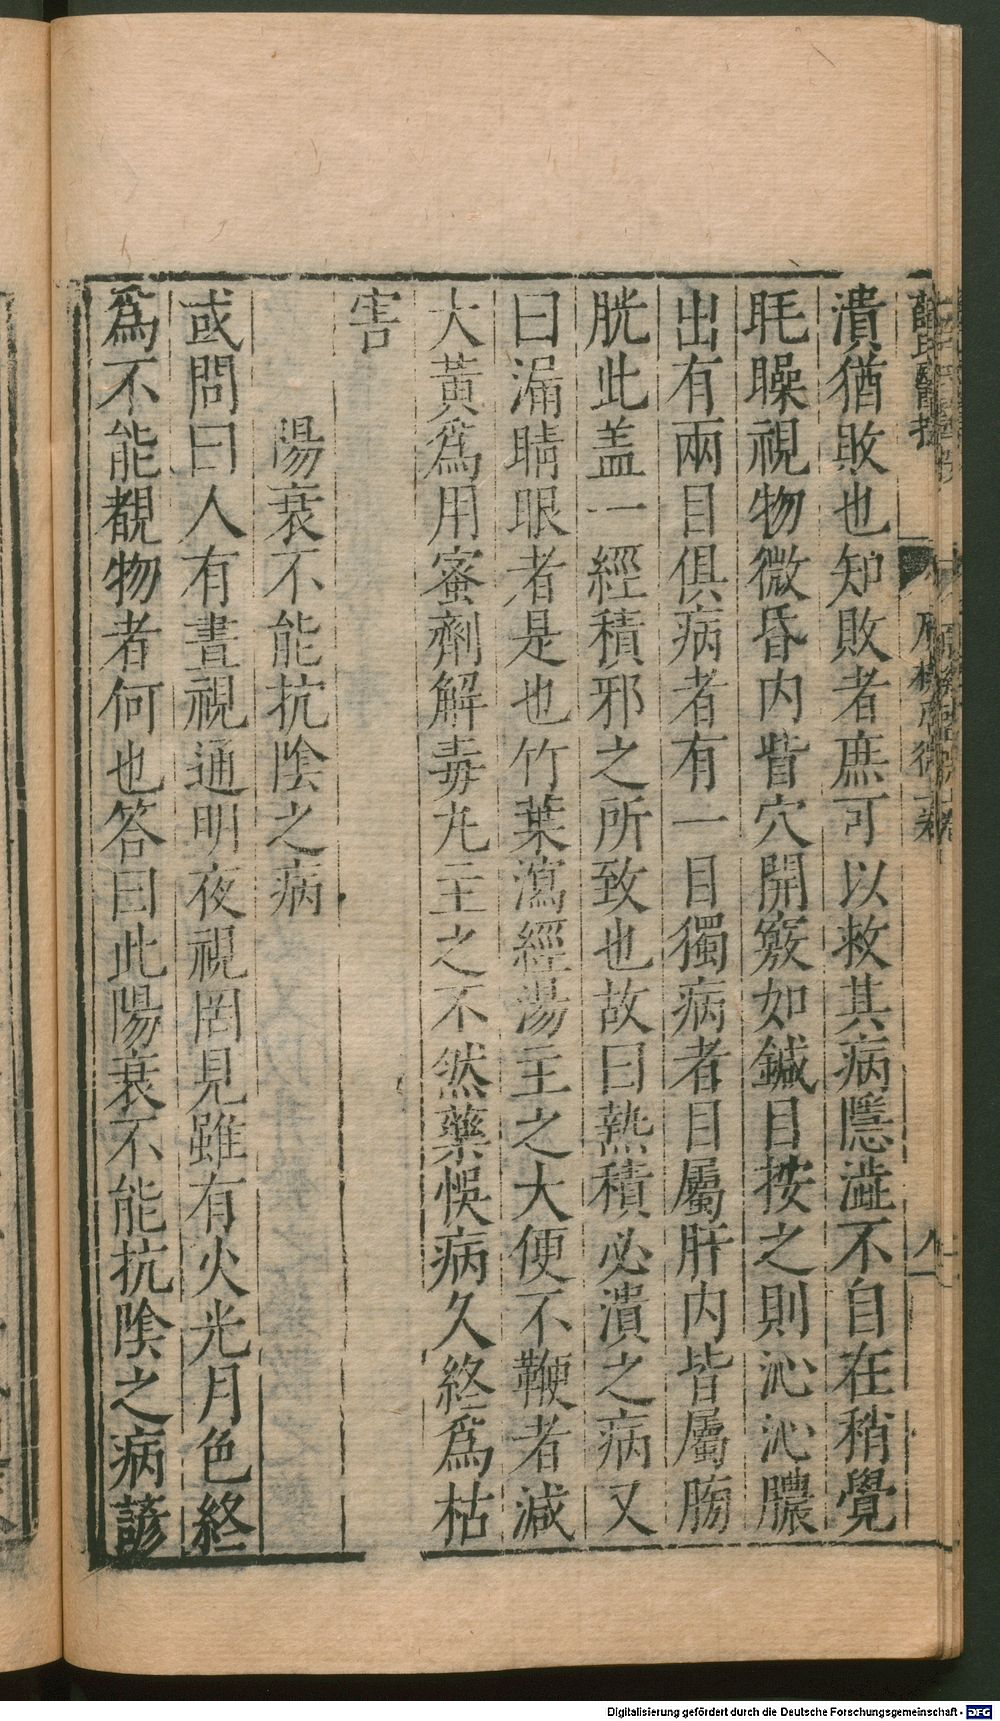 薛氏醫按
潰猶敗也知敗者庶可以救其病隱澁不自在稍覺
眊矂視物微昏内眥穴開竅如鍼目按之則沁沁膿
出有兩目俱病者有一目獨病者目屬肝内眥屬膀
胱此盖一經積邪之所致也故曰熱積必潰之病又
曰漏睛眼者是也竹葉瀉經湯主之大便不鞕者减
大黃爲用蜜劑解毒丸主之不然藥悮病久終爲枯
害
陽衰不能抗陰之病
或問曰人有晝視通明夜視罔見雖有火光月色終
爲不能覩物者何也答曰此陽衰不能抗陰之病諺
Digitalisierung gefördert durch die Deutsche Forschungsgemeinschaft - DFG